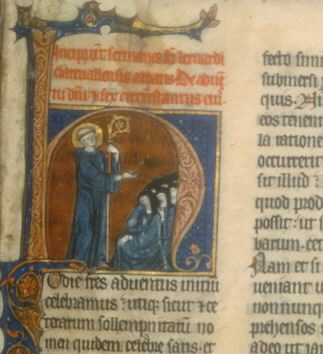 Incipiunt sermones sci bernardi
clarevallensis abbatis De adven
tu dni & sex circumstantiis eius
Hodie fres adventus initiu
celebramus & utiq; sicut & ce
terarum sollempnitatu no
men quidem celebre satis et
fecto simi
submersi
quis.
eos tenen
la ratione
occurrerit
sit illud
quod prod
possit: ut s
harum. cet
Nam et si
veniant u
non nunq
prehensos
adeo ut iar